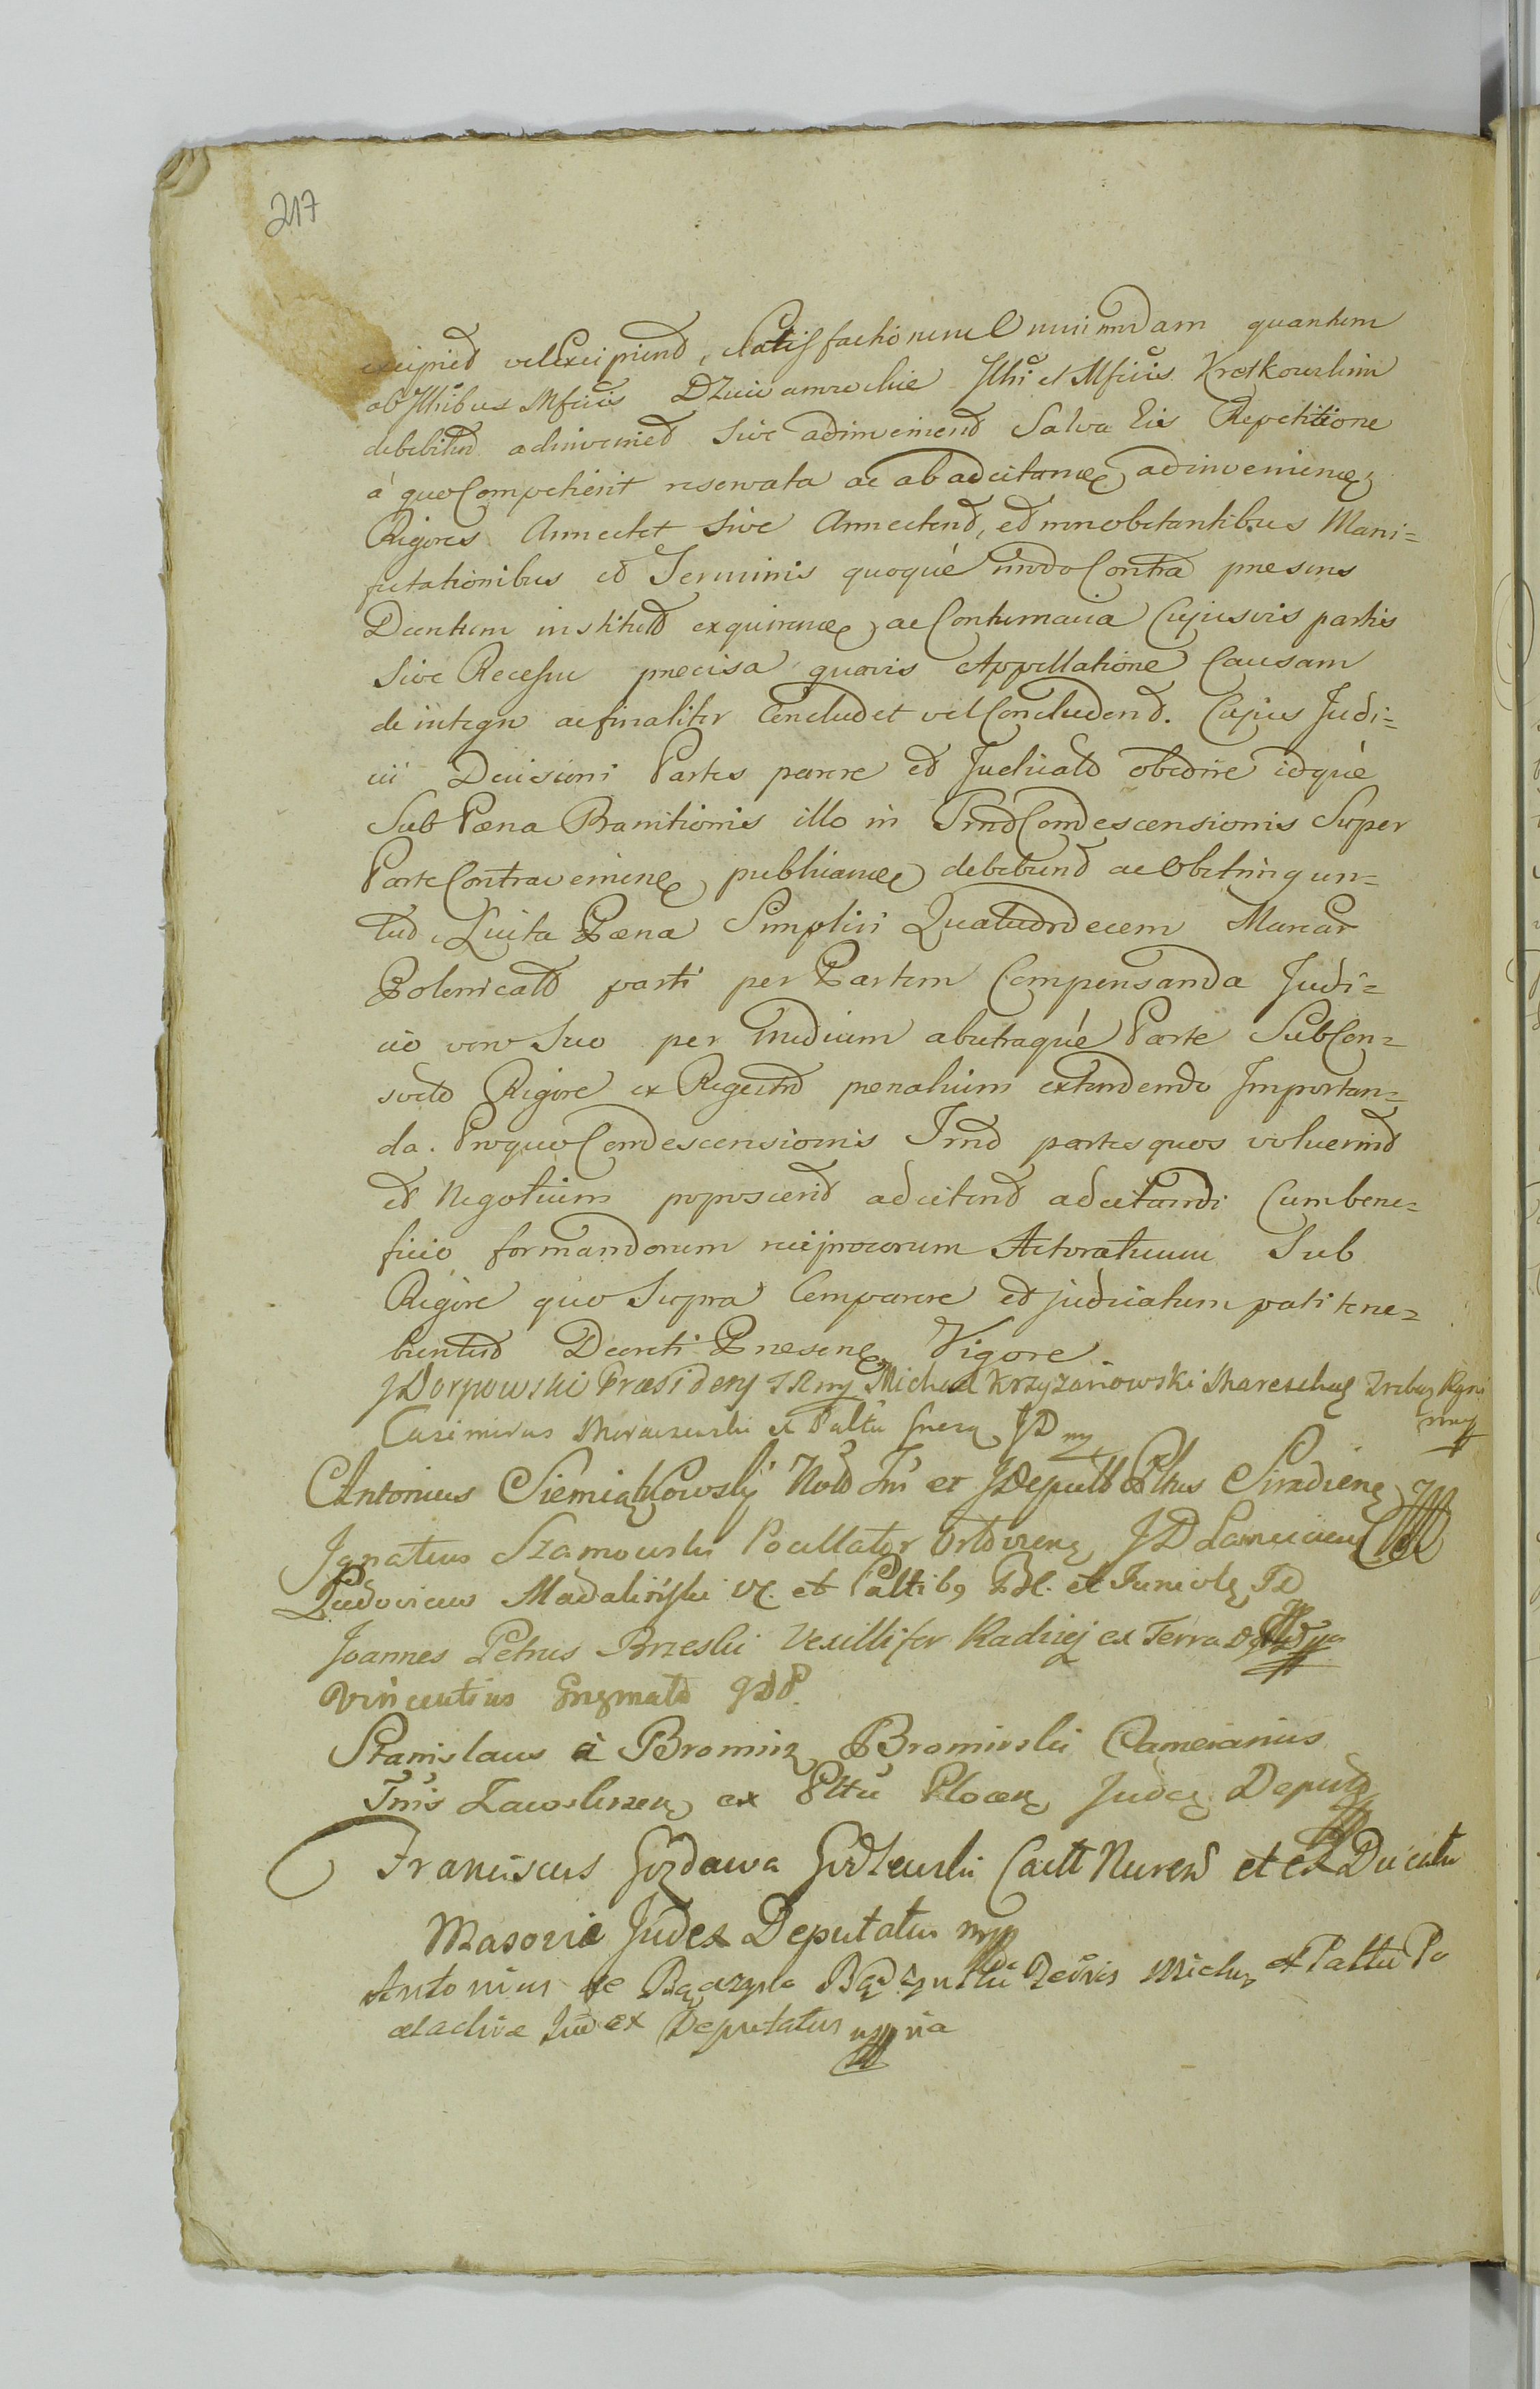 217
excipiet vel Excipiend, Satisfactionem Omnimodam quantum
ab Illribus Mficis Dzwiamrochie Illri et Mficis Krotkowskim
debebitur adinveniet Sive adinveniend Salva Eis Repetitione
à quo Competierit reservata ac ab adcitanđ adinvenienđ
Rigores Annectet Sive Annectend, et non obstantibus Mani=
festationibus et Terminis quoque modo Contra praesens
Decretum institut exquirend, ac Contumacia Cujusvis partis
Sive Recessu praecisa quavis Appellatione Causam
de integro ac finaliter Concludet vel Concludend. Cujus Judi=
cii Decisioni Partes parere et Judicato obedire idque
Sub Paena Banitionis illo in Trno Condescensionis Super
Parte Contraveniend publicand debebund ac Obstringun=
tud, Luita Paena Simplici Quatuordecem Marcar
Polonicald parti per Partem Compensanda Judi=
cio vero Suo per medium ab utraque Parte Sub Con=
sveto Rigore ex Regestro paenalium extendendo Importan=
da. Pro quo Condescensionis Trno partes quos voluerind
et Negotium poposcerid adcitend adcitandi Cum bene=
ficio formandorum reciprocorum Actoratuum Sub
Rigore quo Supra Comparere et judicatum pati tene=
buntud Decreti Praesend Vigore
JDorpowski Praesidens TRny Michael Krzyżanowski Mareschus Tribus Rgni
mmp
Casimirus Moraczewski ex Paltu Gnezn JD mp
Antonius Siemiątkowsky Notd Trus et JDeputt Pltus Siradiens
Ignatius Szamowski Pocillator Ortoviens JD Lanciciens
Ludovicus Madaliński et Paltibs et Juniols JD
Joannes Petrus Brzeski Vexillifer Radziej ex Terra D
Vincentius JDP.
Stanislaus à Bromirz Bromirski Camerarius
Trris Zawskrzens ex Pltu Plocens Judex Deputs
Franciscus Gozdawa Godlewski Castt Nurens et ex Ducatu
Masovie Judex Deputatus mp
Antonius de Bączyński Michs ex Paltu Po
dlachiæ Judex Deputatus mppria